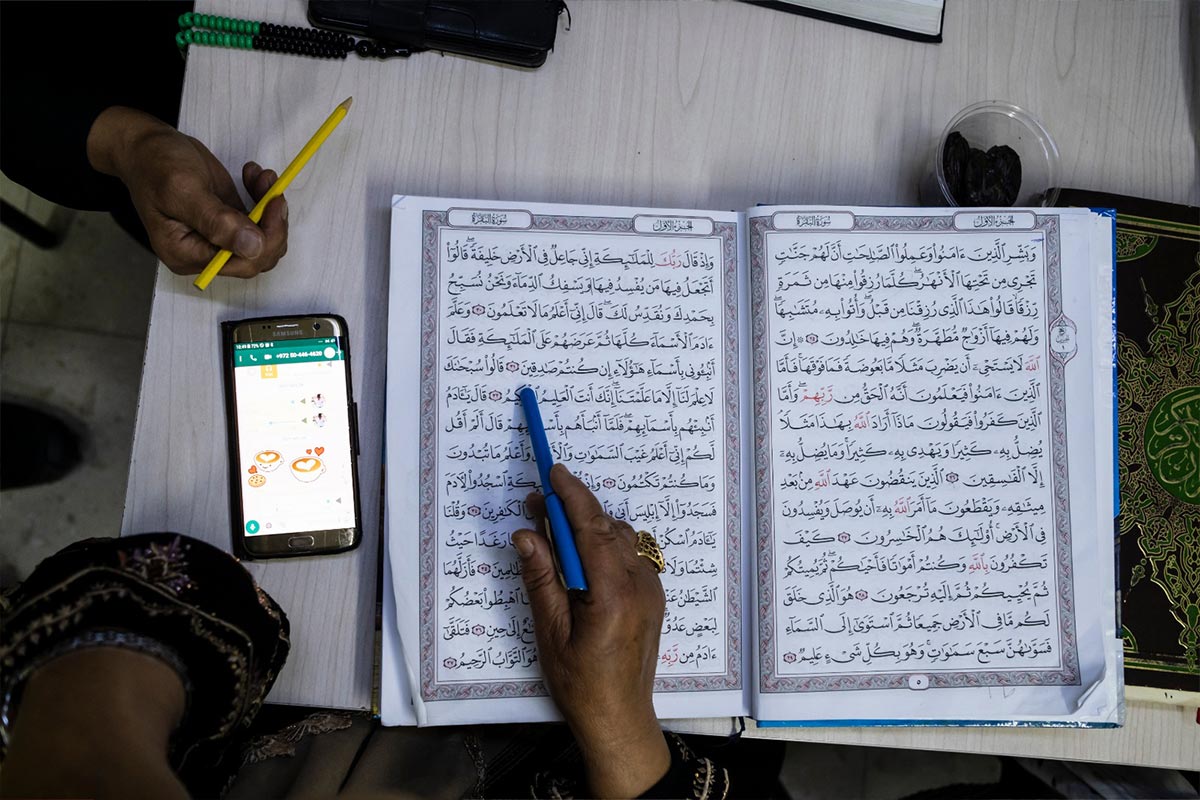 SAMSUNG
الجزء الأول
سورة البقرة
وَبَشِّرِ الَّذِينَ ءَامَنُوا وَعَمِلُوا الصَّالِحَاتِ أَنَّ لَهُمْ جَنَّاتٍ
تَجْرِي مِن تَحْتِهَا الْأَنْهَارُ كُلَّمَا رُزِقُوا مِنْهَا مِن ثَمَرَةٍ
رِّزْقًا قَالُوا هَٰذَا الَّذِي رُزِقْنَا مِن قَبْلُ وَأُتُوا بِهِ مُتَشَابِهًا
وَلَهُمْ فِيهَا أَزْوَاجٌ مُّطَهَّرَةٌ وَهُمْ فِيهَا خَالِدُونَ ٢٥ إِنَّ
اللَّهَ لَا يَسْتَحْيِي أَن يَضْرِبَ مَثَلًا مَّا بَعُوضَةً فَمَا فَوْقَهَا فَأَمَّا
الَّذِينَ ءَامَنُوا فَيَعْلَمُونَ أَنَّهُ الْحَقُّ مِن رَّبِّهِمْ وَأَمَّا
الَّذِينَ كَفَرُوا فَيَقُولُونَ مَاذَا أَرَادَ اللَّهُ بِهَٰذَا مَثَلًا
يُضِلُّ بِهِ كَثِيرًا وَيَهْدِي بِهِ كَثِيرًا وَمَا يُضِلُّ بِهِ
إِلَّا الْفَاسِقِينَ ٢٦ الَّذِينَ يَنقُضُونَ عَهْدَ اللَّهِ مِن بَعْدِ
مِيثَاقِهِ وَيَقْطَعُونَ مَا أَمَرَ اللَّهُ بِهِ أَن يُوصَلَ وَيُفْسِدُونَ
فِي الْأَرْضِ أُولَٰئِكَ هُمُ الْخَاسِرُونَ ٢٧ كَيْفَ
تَكْفُرُونَ بِاللَّهِ وَكُنتُمْ أَمْوَاتًا فَأَحْيَاكُمْ ثُمَّ يُمِيتُكُمْ
ثُمَّ يُحْيِيكُمْ ثُمَّ إِلَيْهِ تُرْجَعُونَ ٢٨ هُوَ الَّذِي خَلَقَ
لَكُم مَّا فِي الْأَرْضِ جَمِيعًا ثُمَّ اسْتَوَىٰ إِلَى السَّمَاءِ
فَسَوَّاهُنَّ سَبْعَ سَمَاوَاتٍ وَهُوَ بِكُلِّ شَيْءٍ عَلِيمٌ ٢٩
٥
الجزء الأول
سورة البقرة
وَإِذْ قَالَ رَبُّكَ لِلْمَلَائِكَةِ إِنِّي جَاعِلٌ فِي الْأَرْضِ خَلِيفَةً قَالُوا
أَتَجْعَلُ فِيهَا مَن يُفْسِدُ فِيهَا وَيَسْفِكُ الدِّمَاءَ وَنَحْنُ نُسَبِّحُ
بِحَمْدِكَ وَنُقَدِّسُ لَكَ قَالَ إِنِّي أَعْلَمُ مَا لَا تَعْلَمُونَ ٣٠ وَعَلَّمَ
ءَادَمَ الْأَسْمَاءَ كُلَّهَا ثُمَّ عَرَضَهُمْ عَلَى الْمَلَائِكَةِ فَقَالَ
أَنبِئُونِي بِأَسْمَاءِ هَٰؤُلَاءِ إِن كُنتُمْ صَادِقِينَ ٣١ قَالُوا سُبْحَانَكَ
لَا عِلْمَ لَنَا إِلَّا مَا عَلَّمْتَنَا إِنَّكَ أَنتَ الْعَلِيمُ ٣٢ قَالَ يَاءَادَمُ
أَنبِئْهُم بِأَسْمَائِهِمْ فَلَمَّا أَنبَأَهُم بِأَسْمَائِهِمْ قَالَ أَلَمْ أَقُل
لَّكُمْ إِنِّي أَعْلَمُ غَيْبَ السَّمَاوَاتِ وَأَعْلَمُ مَا تُبْدُونَ
وَمَا كُنتُمْ تَكْتُمُونَ ٣٣ وَإِذْ اسْجُدُوا لِءَادَمَ
فَسَجَدُوا إِلَّا إِبْلِيسَ أَبَىٰ الْكَافِرِينَ ٣٤ وَقُلْنَا
يَاءَادَمُ اسْكُنْ رَغَدًا حَيْثُ
شِئْتُمَا وَلَا فَأَزَلَّهُمَا
الشَّيْطَانُ اهْبِطُوا بَعْضُكُمْ
لِبَعْضٍ عَدُوٌّ إِلَىٰ حِينٍ ٣٦ فَتَلَقَّىٰ
ءَادَمُ مِن رَّبِّهِ التَّوَّابُ الرَّحِيمُ ٣٧